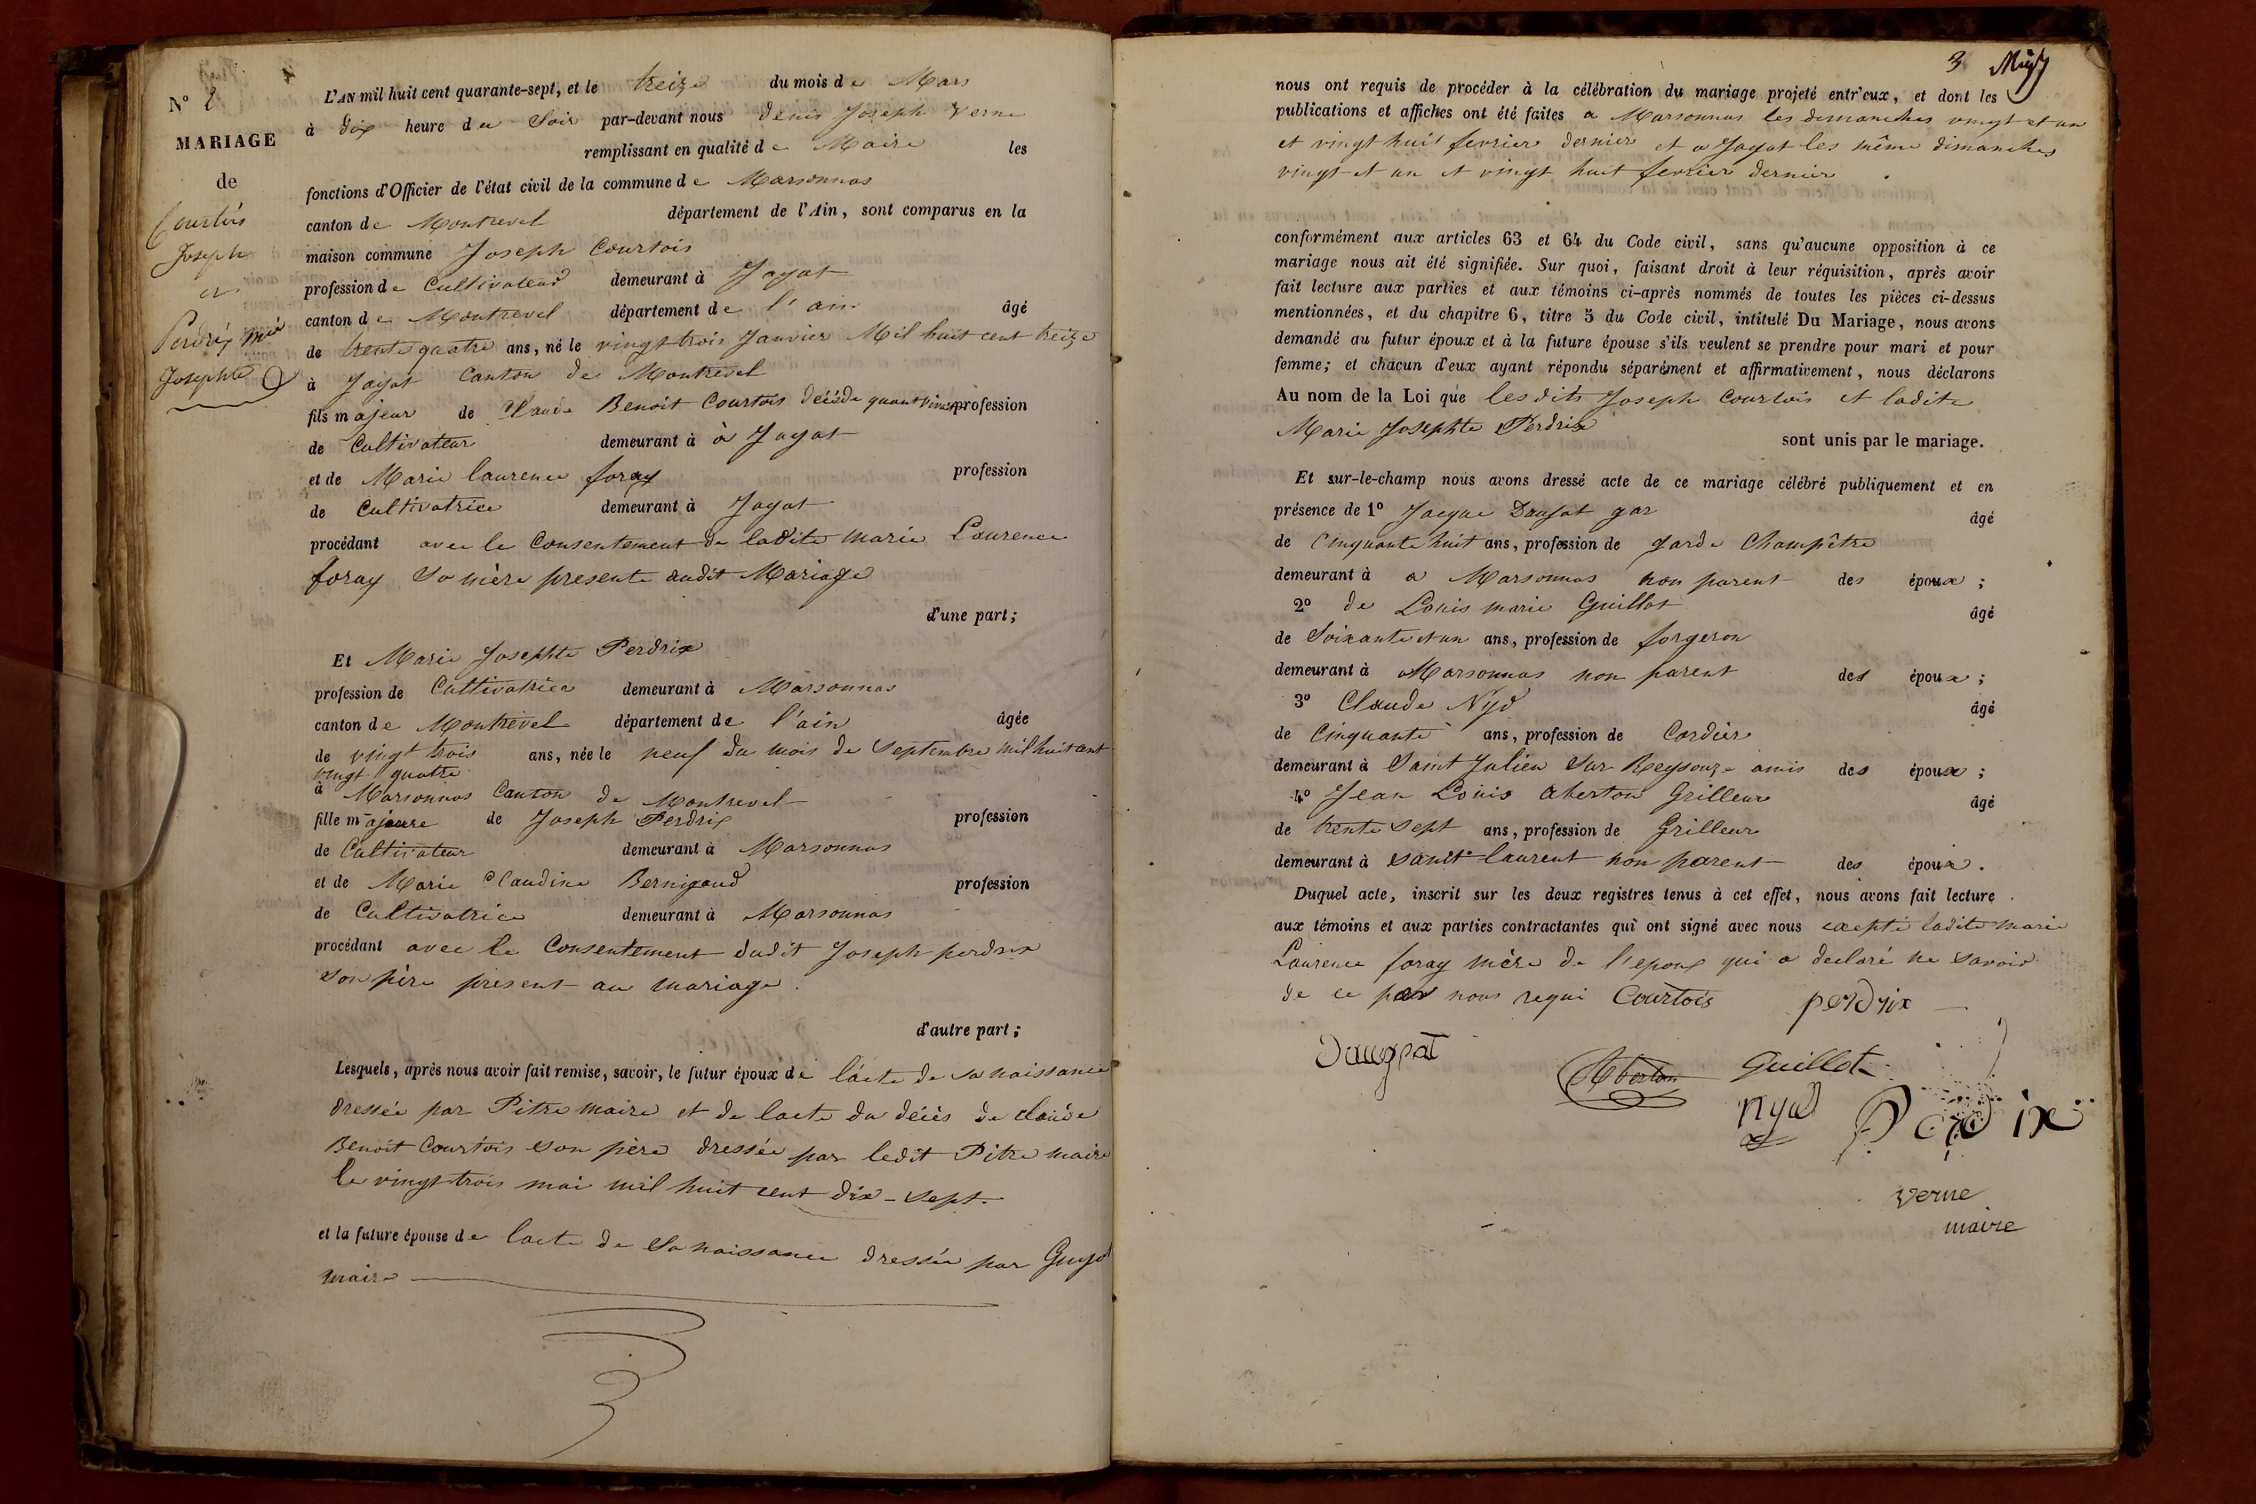 N° 2
MARIAGE
de
Courtois
Joseph
et
Perdrix Mie
Josephte
L'AN mil huit cent quarante-sept, et le treize du mois de Mars
à dix heure du Soir par-devant nous Denis Joseph Verne
remplissant en qualité de Maire les
fonctions d'Officier de l'état civil de la commune de Marsonnas
canton de Montrevel département de l'Ain, sont comparus en la
maison commune Joseph Courtois
profession de Cultivateur demeurant à Jayat
canton de Montrevel département de l'ain âgé
de trente quatre ans, né le vingt trois Janvier Mil huit cent treize
à Jayat Canton de Montrevel
fils majeur de Claude Benoit Courtois décédé quant vivant profession
de Cultivateur demeurant à à Jayat
et de Marie laurence foray profession
de Cultivatrice demeurant à Jayat
procédant avec le Consentement de ladite Marie Laurence
foray sa mère presente audit Mariage
d'une part;
Et Marie Josephte Perdrix
profession de Cultivatrice demeurant à Marsonnas
canton de Montrevel département de l'ain âgée
de vingt trois ans, née le neuf du mois de Septembre mil huit cent
vingt quatre
à Marsonnas Canton de Montrevel
fille majeure de Joseph Perdrix profession
de Cultivateur demeurant à Marsonnas
et de Marie Claudine Bernigaud profession
de Cultivatrice demeurant à Marsonnas
procédant avec le Consentement dudit Joseph perdrix
son père present au mariage.
d'autre part;
Lesquels, après nous avoir fait remise, savoir, le futur époux de l'acte de sa naissance
dressée par Pitre maire et de lacte du décès de claude
Benoit Courtois son père dressée par ledit Pitre maire
le vingt trois mai mil huit cent dix-sept.
et la future épouse de lacte de Sa naissance dressée par Guyot
maire
3
nous ont requis de procéder à la célébration du mariage projeté entr'eux, et dont les
publications et affiches ont été faites a Marsonnas les dimanches vingt et un
et vingt huit fevrier dernier et a Jayat les même dimanches
vingt et un et vingt huit fevrier dernier
conformément aux articles 63 et 64 du Code civil, sans qu'aucune opposition à ce
mariage nous ait été signifiée. Sur quoi, faisant droit à leur réquisition, après avoir
fait lecture aux parties et aux témoins ci-après nommés de toutes les pièces ci-dessus
mentionnées, et du chapitre 6, titre 5 du Code civil, intitulé Du Mariage, nous avons
demandé au futur époux et à la future épouse s'ils veulent se prendre pour mari et pour
femme; et chacun d'eux ayant répondu séparément et affirmativement, nous déclarons
Au nom de la Loi que lesdits Joseph Courtois et ladite
Marie Josephte Perdrix sont unis par le mariage.
Et sur-le-champ nous avons dressé acte de ce mariage célébré publiquement et en
présence de 1° Jacque Daujat gar âgé
de Cinquante huit ans, profession de garde Champêtre
demeurant à a Marsonnas non parent des époux;
2° de Louis marie Guillot âgé
de Soixante et un ans, profession de forgeron
demeurant à Marsonnas non parent des époux;
3° Claude Nyd âgé
de Cinquante ans, profession de Cordier
demeurant à Saint Julien Sur Reysouze amis des époux;
4° Jean Louis Aberton Grilleur âgé
de trente sept ans, profession de Grilleur
demeurant à saint laurent non parent des époux.
Duquel acte, inscrit sur les deux registres tenus à cet effet, nous avons fait lecture
aux témoins et aux parties contractantes qui ont signé avec nous excepté ladite marie
Laurence foray mère de l'epoux qui a declaré ne savoir
de ce par nous requi Courtois perdrix
Daugpat
Aberton Guillot
nyd Perdrix
verne
maire